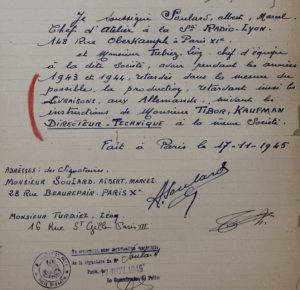 Je soussigné Soulard, Albert, Marcel
Chef d'Atelier à la Sté RADIO-LYON.
148 Rue Oberkampf à PARIS XIe
et Monsieur Turbiez, Léon, chef d'équipe
à la dite Société, avoir pendant les années
1943 et 1944, retardés dans la mesure du
possible, la production, retardant ainsi les
LIVRAISONS, aux Allemands, suivant les
instructions de Monsieur TIBOR, KAUFMAN
DIRECTEUR-TECHNIQUE à la même Société.
Fait à Paris le 17-11-1945
ADRESSES: des Signataires.
MONSIEUR SOULARD, ALBERT, MARCEL
28 RUE BEAUREPAIR. PARIS Xe
A. Soulard
MONSIEUR TURBIEZ, Léon,
16 Rue St Gilles Paris III
de la signature de M. Soulard
Paris, 1945
Le Commissaire de Police